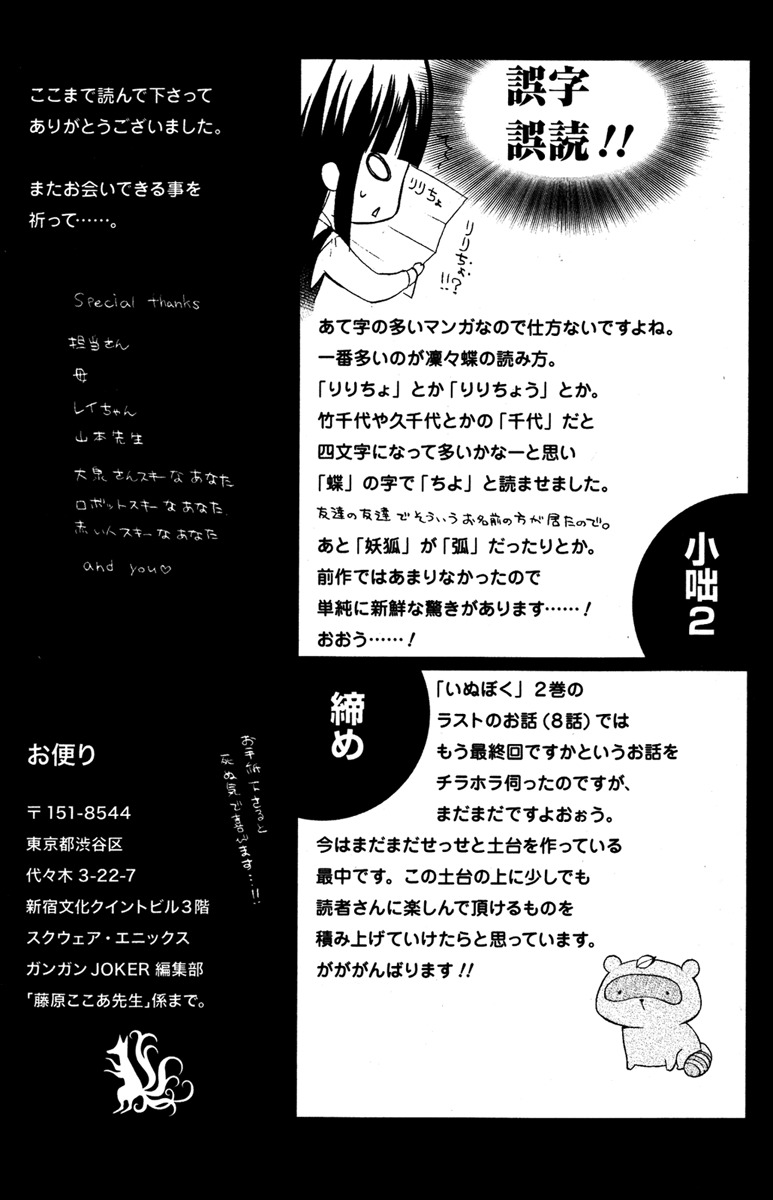 誤字
誤読!!
りりちょ
りりぢょ?
!!!
あて字の多いマンガなので仕方ないですよね。
一番多いのが凜々蝶の読み方。
「りりちょ」とか「りりちょう」とか。
竹千代や久千代とかの「千代」だと
四文字になって多いかなーと思い
「蝶」の字で「ちよ」と読ませました。
友達の友達でそういうお名前の方が居たので。
あと「妖狐」が「弧」だったりとか。
前作ではあまりなかったので
単純に新鮮な驚きがあります……!
おおう……!
小咄2
締め
「いぬぼく」2巻の
ラストのお話(8話)では
もう最終回ですかというお話を
チラホラ伺ったのですが、
まだまだですよおぉう。
今はまだまだせっせと土台を作っている
最中です。この土台の上に少しでも
読者さんに楽しんで頂けるものを
積み上げていけたらと思っています。
がががんばります!!
ここまで読んで下さって
ありがとうございました。
またお会いできる事を
祈って……。
Special thanks
担当さん
母
レイちゃん
山本先生
大泉さんスキーなあなた
ロボットスキーなあなた
赤い人スキーなあなた
and you♡
お便り
お手紙下さると
死ぬ気で喜びます…!!
〒151-8544
東京都渋谷区
代々木 3-22-7
新宿文化クイントビル3階
スクウェア・エニックス
ガンガン JOKER 編集部
「藤原ここあ先生」係まで。